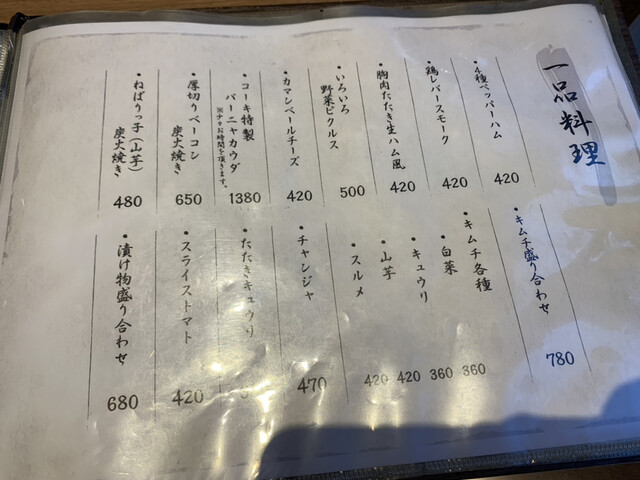 一品料理
・4種ペッパーハム
420
・鶏レバースモーク
420
・胸肉たたき生ハム風
420
・いろいろ
野菜ピクルス
500
・カマンベールチーズ
420
・コーキ特製
バーニャカウダ
※少々お時間を頂きます。
1380
・厚切りベーコン
炭火焼き
650
・ねばりっ子(山芋)
炭火焼き
480
・キムチ盛り合わせ
780
・キムチ各種
・白菜
360
・キュウリ
360
・山芋
420
・スルメ
420
・チャンジャ
470
・たたきキュウリ
・スライストマト
420
・漬け物盛り合わせ
680